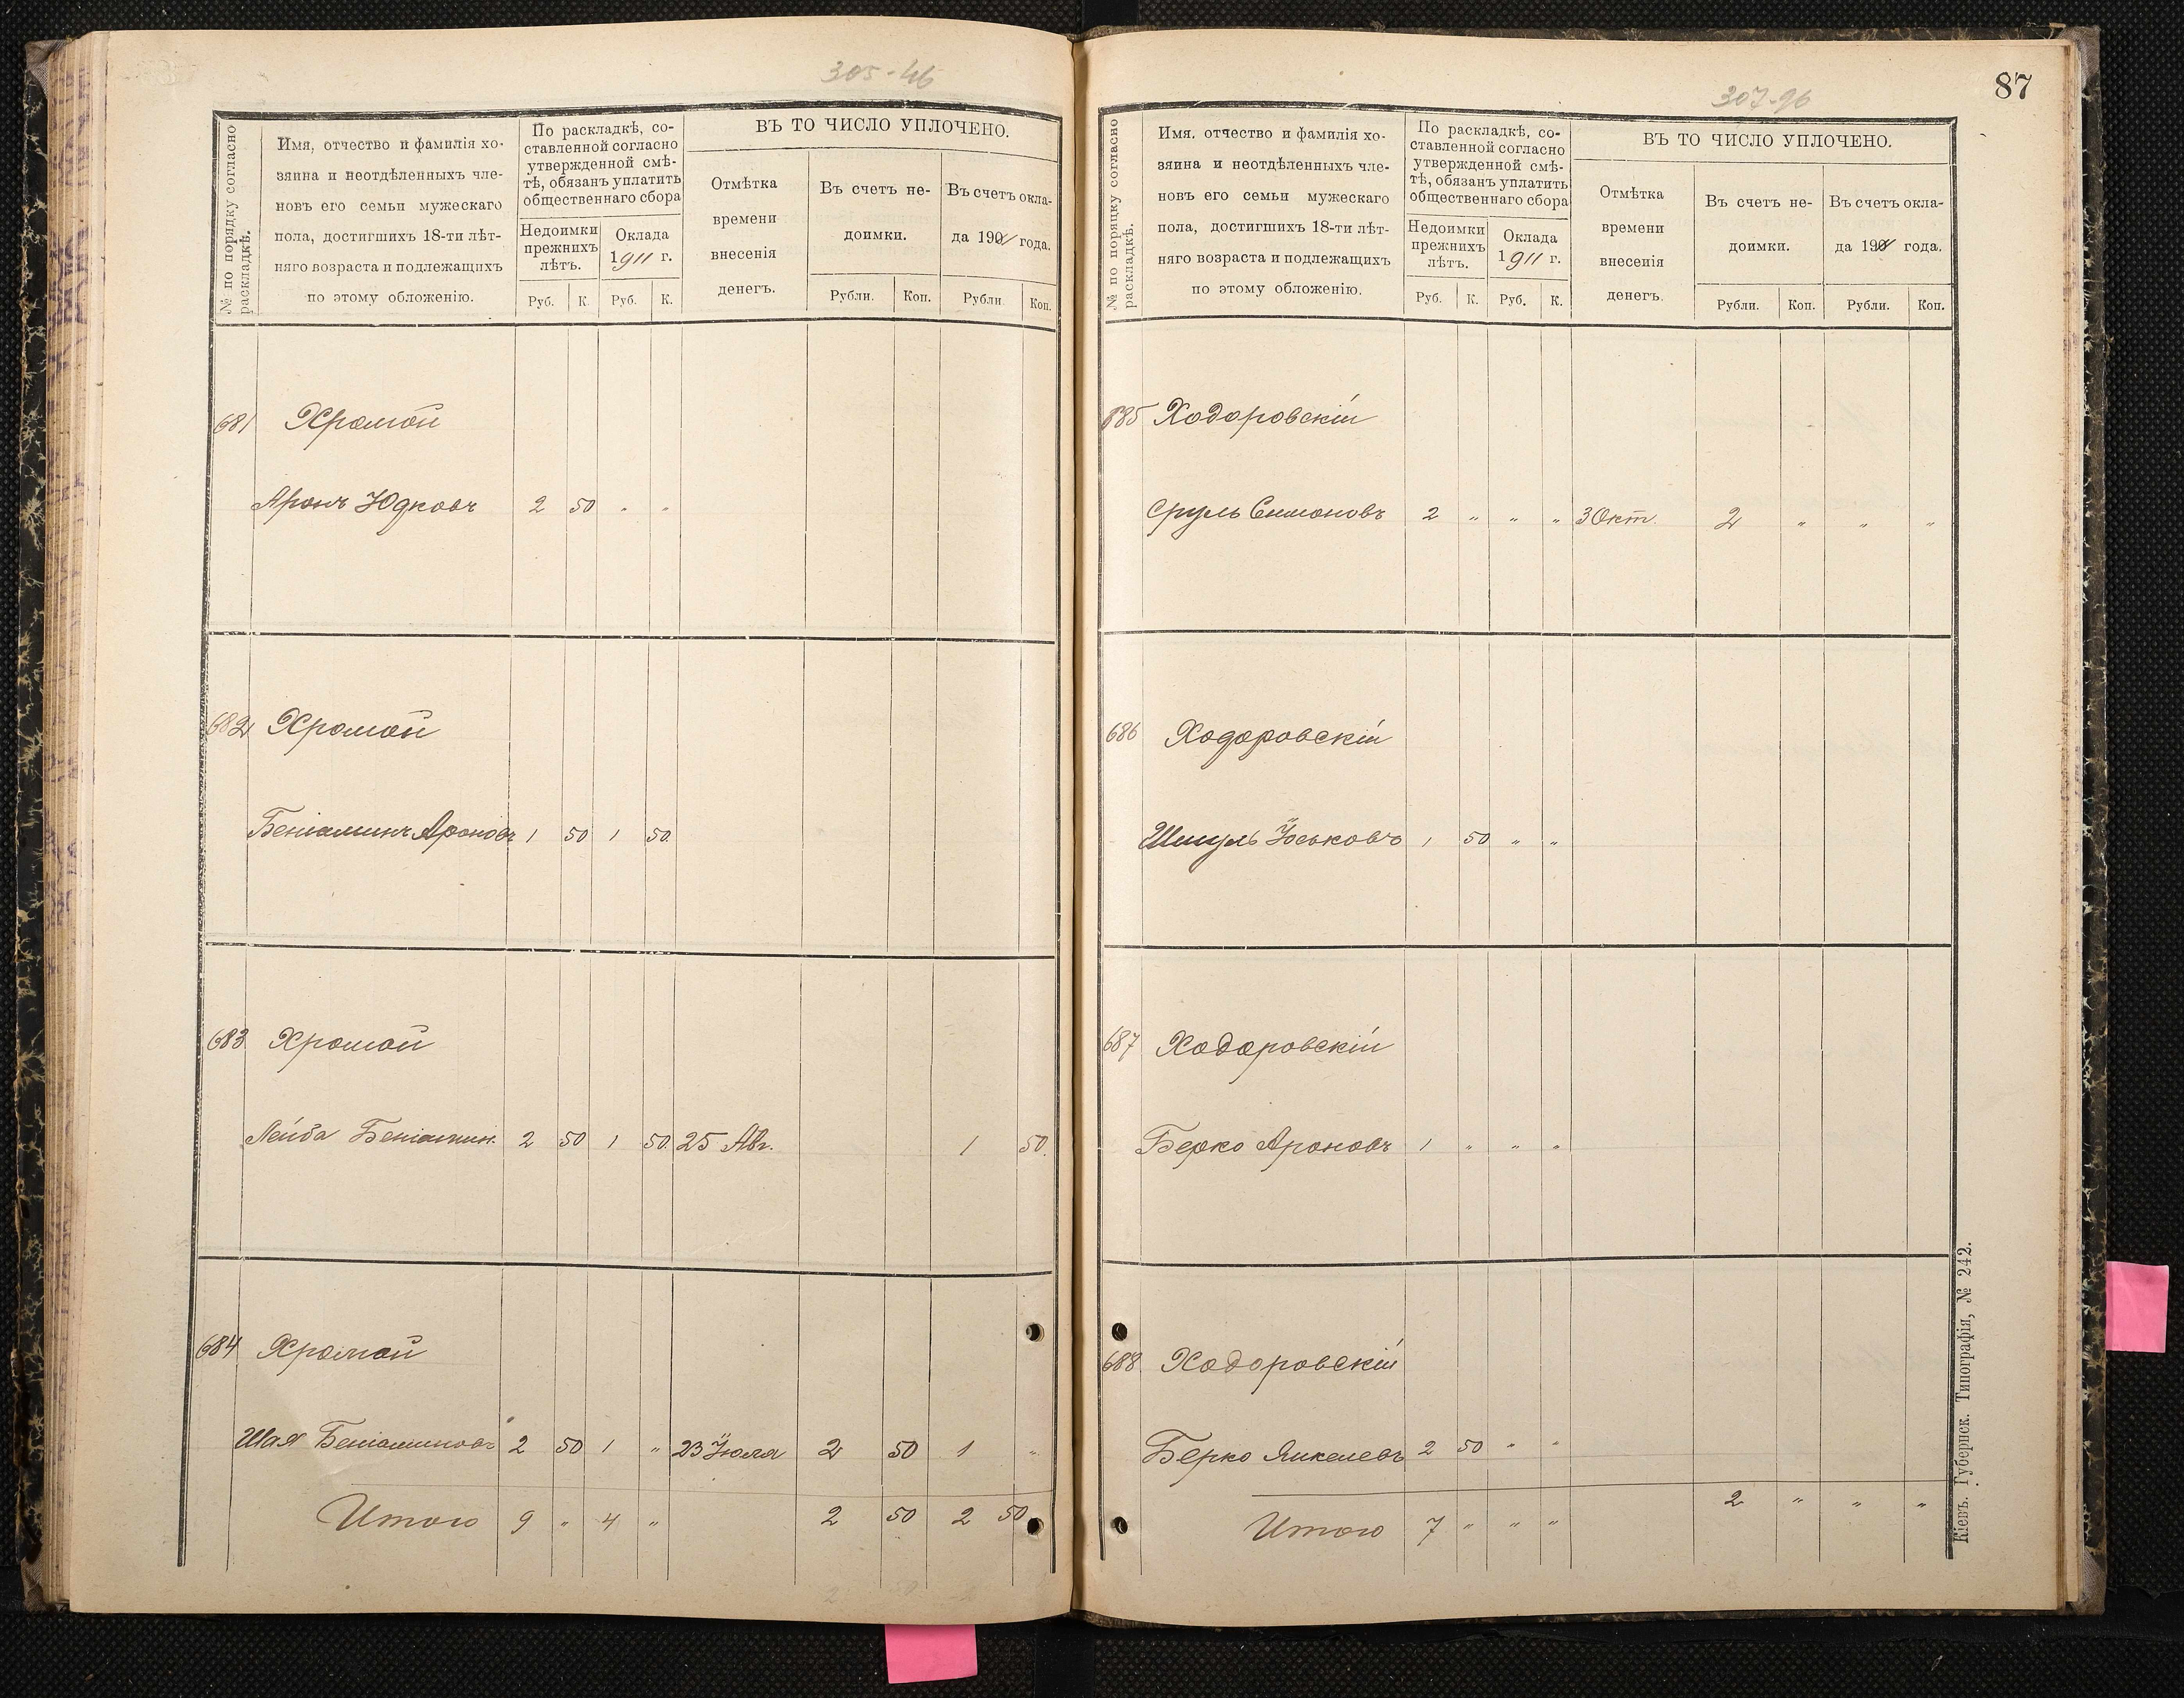 305-46
№ по порядку согласно раскладкѣ.
Имя, отчество и фамилія хо-
зяина и неотдѣленныхъ чле-
новъ его семьи мужескаго
пола, достигшихъ 18-ти лѣт-
няго возраста и подлежащихъ
по этому обложенію.
По раскладкѣ, со-
ставленной согласно
утвержденной смѣ-
тѣ, обязанъ уплатить
общественнаго сбора
Недоимки
прежнихъ
лѣтъ.
Оклада
1911 г.
Руб. К. Руб. К.
ВЪ ТО ЧИСЛО УПЛОЧЕНО.
Отмѣтка
времени
внесенія
денегъ.
Въ счетъ не-
доимки.
Въ счетъ окла-
да 1911 года.
Рубли. Коп. Рубли. Коп.
681 Хромой
Аронъ Юдковъ 2 50 " "
682 Хромой
Беніаминъ Ароновъ 1 50 1 50
683 Хромой
Лейба Беніамин. 2 50 1 50 25 Авг. 1 50
684 Хромой
Шая Беніаминовъ 2 50 1 " 23 Июля 2 50 1 "
Итого 9 " 4 " 2 50 2 50
87
307-96
№ по порядку согласно раскладкѣ.
Имя. отчество и фамилія хо-
зяина и неотдѣленныхъ чле-
новъ его семьи мужескаго
пола, достигшихъ 18-ти лѣт-
няго возраста и подлежащихъ
по этому обложенію.
По раскладкѣ, со-
ставленной согласно
утвержденной смѣ-
тѣ, обязанъ уплатить
общественнаго сбора
Недоимки
прежнихъ
лѣтъ.
Оклада
1911 г.
Руб. К. Руб. К.
ВЪ ТО ЧИСЛО УПЛОЧЕНО.
Отмѣтка
времени
внесенія
денегъ.
Въ счетъ не-
доимки.
Въ счетъ окла-
да 1911 года.
Рубли. Коп. Рубли. Коп.
685 Ходоровскій
Сруль Симоновъ 2 " " " 3 Окт. 2 " " "
686 Ходоровскій
Шмуль Йоськовъ 1 50 " "
687 Ходоровскій
Берко Ароновъ 1 " " "
688 Ходоровскій
Берко Янкелевъ 2 50 " "
Итого 7 " " " 2 " " "
Кіевъ. Губернск. Типографія, № 242.